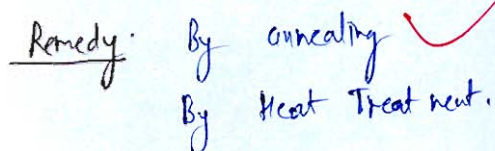 Remedy. By annealing
By Heat Treatment.